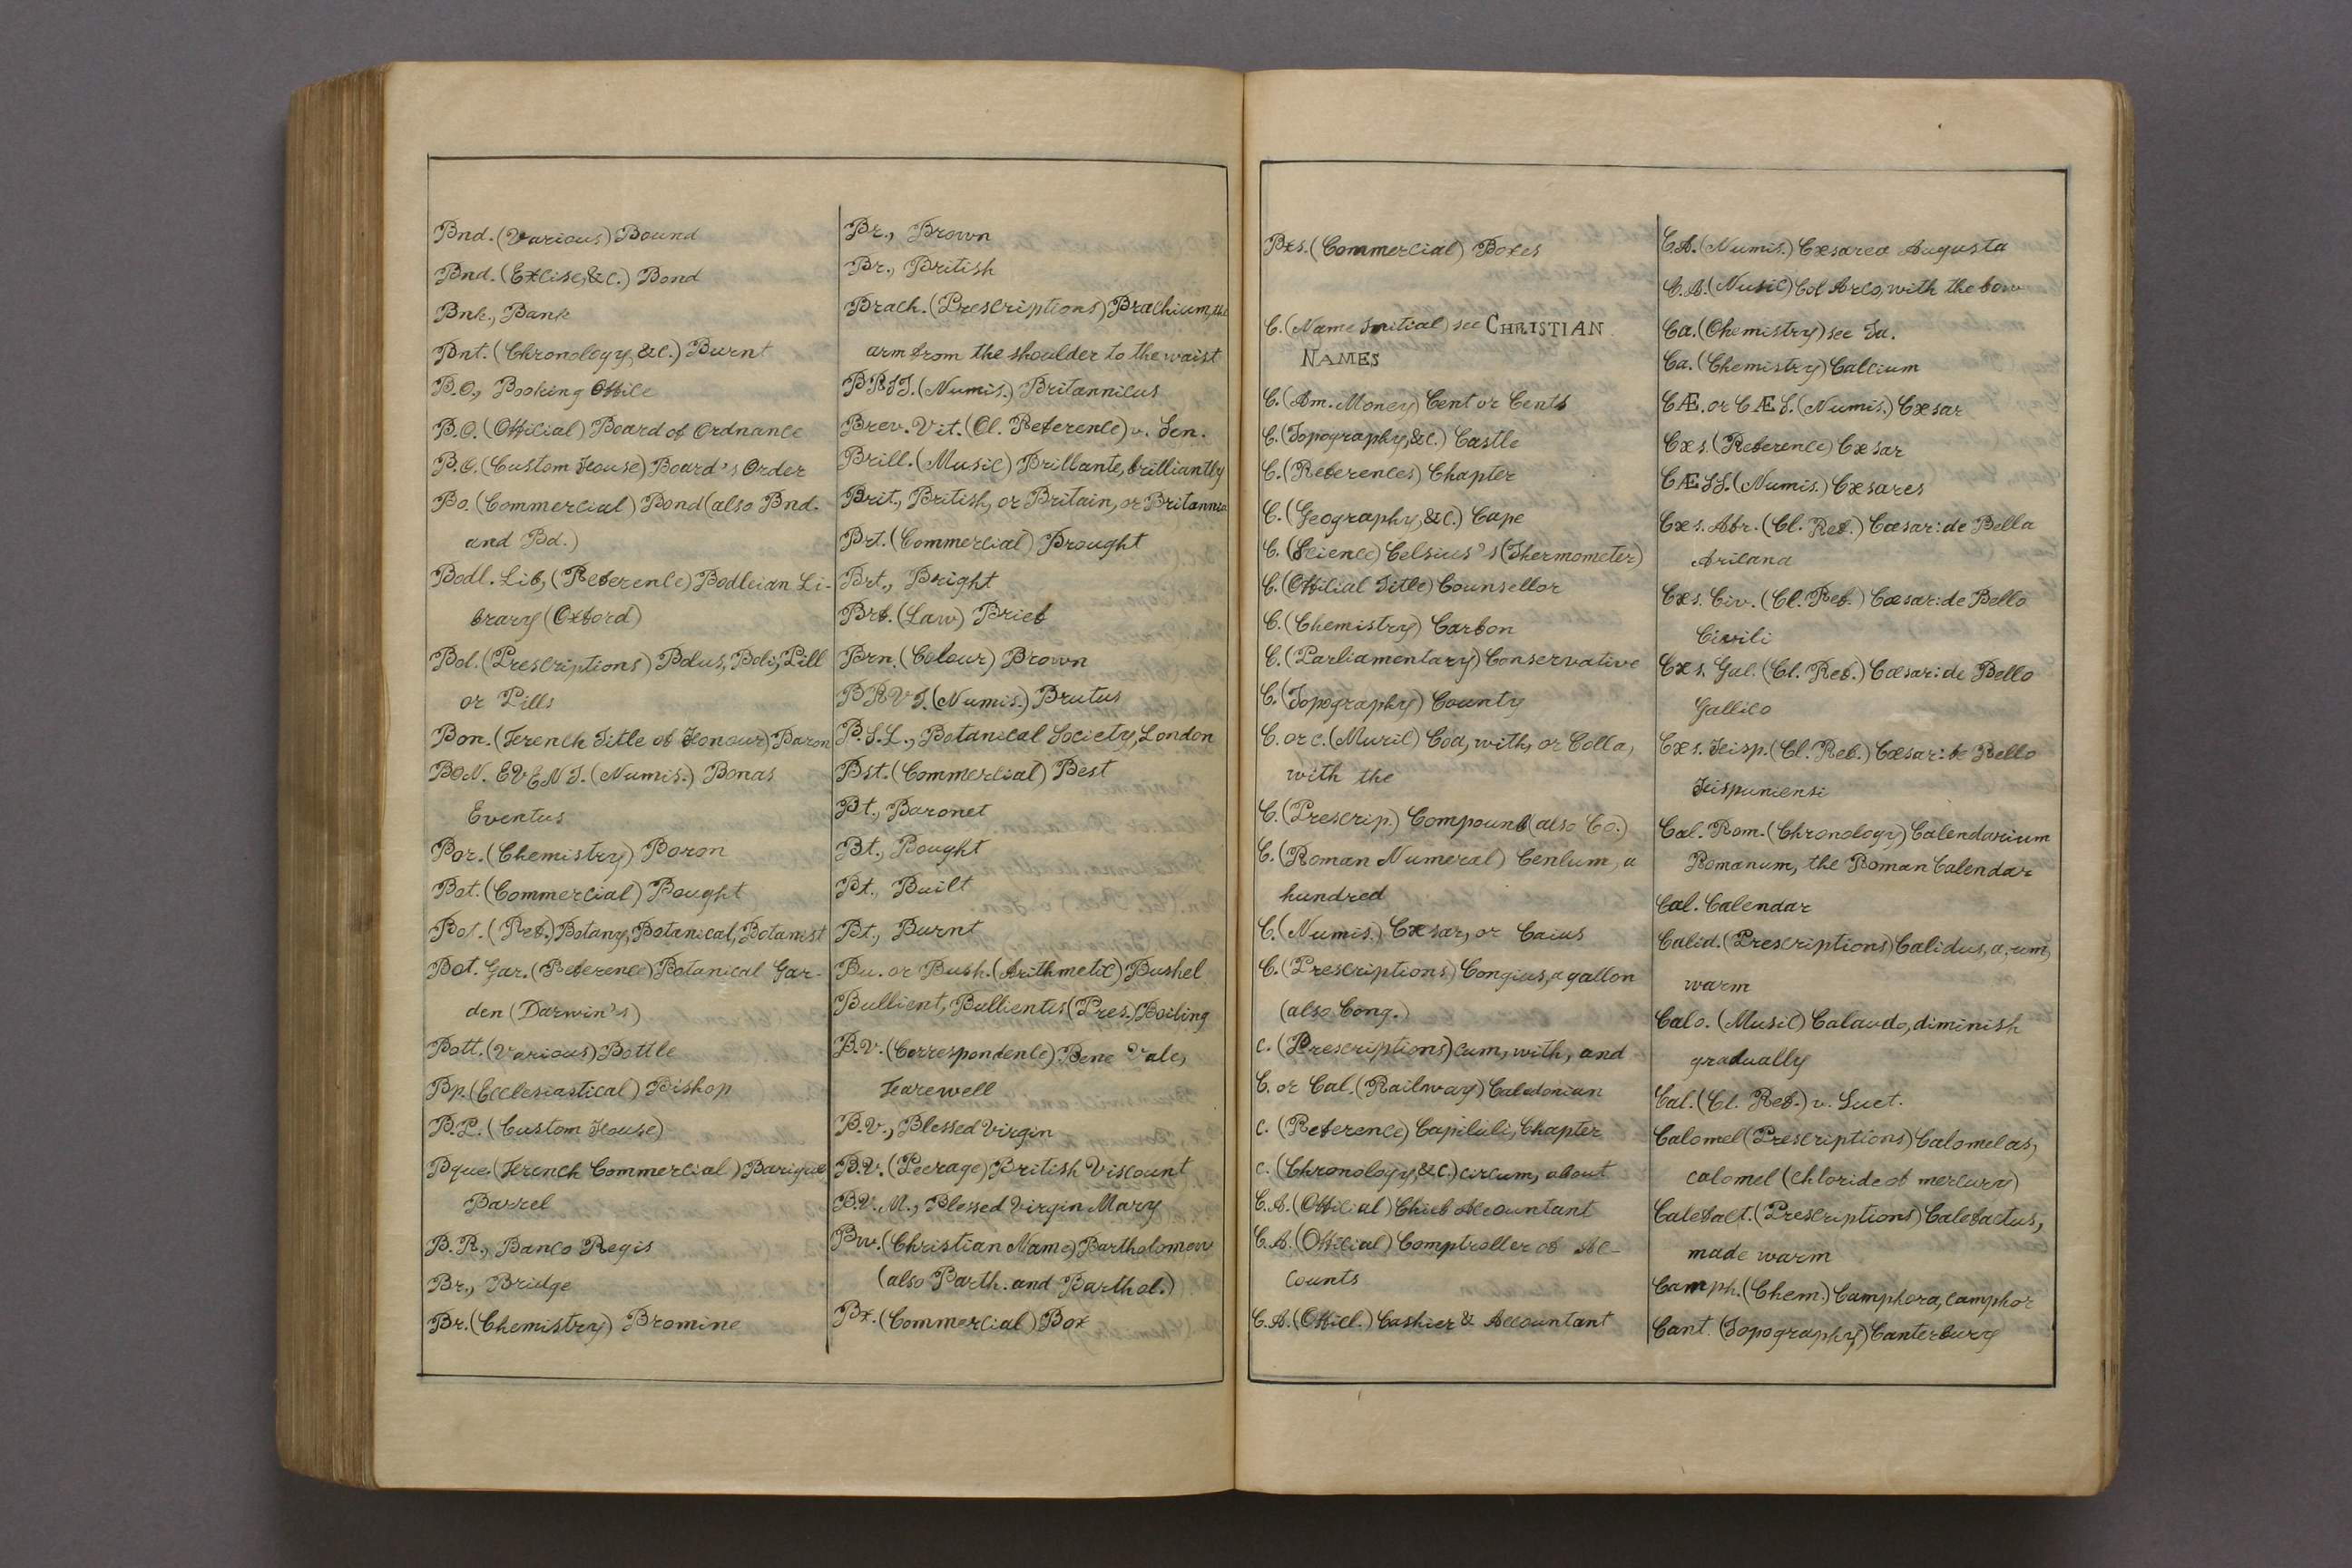 Bnd. (Various) Bound
Bnd. (Excise, &c.) Bond
Bnk., Bank
Bnt. (Chronology, &c.) Burnt
B.O., Booking Office
B.O. (Official) Board of Ordnance
B.O. (Custom House) Board's Order
Bo. (Commercial) Bond (also Bnd.
and Bd.)
Bodl. Lib, (Reference) Bodleian Li-
brary (Oxford)
Bol. (Prescriptions) Bolus, Boli, Pill
or Pills
Bon. (French Title of Honour) Baron
BON. EVENT. (Numis.) Bonas
Eventus
Bor. (Chemistry) Boron
Bot. (Commercial) Bought
Bot. (Ref.) Botany, Botanical, Botanist
Bot. Gar. (Reference) Botanical Gar-
den (Darwin's)
Bott. (Various) Bottle
Bp. (Ecclesiastical) Bishop
B.P. (Custom House)
Bque. (French Commercial) Barique
Barrel
B.R., Banco Regis
Br., Bridge
Br. (Chemistry) Bromine
Br., Brown
Br., British
Brach. (Prescriptions) Brachium, the
arm from the shoulder to the waist
BRIT. (Numis.) Britannicus
Brev. Vit. (Cl. Reference) v. Sen.
Brill. (Music) Brillante, brilliantly
Brit., British, or Britain, or Britannia
Brt. (Commercial) Brought
Brt., Bright
Brf. (Law) Brief
Brn. (Colour) Brown
BRVT. (Numis.) Brutus
B.S.L., Botanical Society, London
Bst. (Commercial) Best
Bt., Baronet
Bt., Bought
Bt., Built
Bt., Burnt
Bu. or Bush. (Arithmetic) Bushel
Bullient, Bullientes (Pres.) Boiling
B.V. (Correspondence) Bene Vale,
Farewell
B.V., Blessed Virgin
B.V. (Peerage) British Viscount
B.V.M., Blessed Virgin Mary
Bw. (Christian Name) Bartholomew
(also Barth. and Barthol.)
Bx. (Commercial) Box
Bxs. (Commercial) Boxes
C. (Name Initial) see CHRISTIAN
NAMES
C. (Am. Money) Cent or Cents
C. (Topography, &c.) Castle
C. (References) Chapter
C. (Geography, &c.) Cape
C. (Science) Celsius's (Thermometer)
C. (Official Title) Counsellor
C. (Chemistry) Carbon
C. (Parliamentary) Conservative
C. (Topography) County
C. or c. (Music) Coa, with, or Colla,
with the
C. (Prescrip.) Compound (also Co.)
C. (Roman Numeral) Cenlum, a
hundred
C. (Numis.) Cæsar, or Caius
C. (Prescriptions) Congius, a gallon
(also Cong.)
c. (Prescriptions) cum, with, and
C. or Cal. (Railway) Caledonian
c. (Reference) Capituli, Chapter
c. (Chronology, &c.) circum, about
C.A. (Official) Chief Accountant
C.A. (Official) Comptroller of Ac-
counts
C.A. (Officl.) Cashier & Accountant
C.A. (Numis.) Cæsarea Augusta
C.A. (Music) Col Arco, with the bow
Ca. (Chemistry) see Ta.
Ca. (Chemistry) Calcium
CÆ. or CÆS. (Numis.) Cæsar
Cæs. (Reference) Cæsar
CÆSS. (Numis.) Cæsares
Cæs. Afr. (Cl. Ref.) Cæsar: de Bella
Aricana
Cæs. Civ. (Cl. Ref.) Cæsar: de Bello
Civili
Cæs. Gal. (Cl. Ref.) Cæsar: de Bello
Gallico
Cæs. Hisp. (Cl. Ref.) Cæsar: be Bello
Hispuniensi
Cal. Rom. (Chronology) Calendarium
Romanum, the Roman Calendar
Cal. Calendar
Calid. (Prescriptions) Calidus, a, um,
warm
Calo. (Music) Calando, diminish
gradually
Cal. (Cl. Ref.) v. Suet.
Calomel (Prescriptions) Calomelas,
calomel (chloride of mercury)
Calefact. (Prescriptions) Calefactus,
made warm
Camph. (Chem.) Camphora, camphor
Cant. (Topography) Canterbury